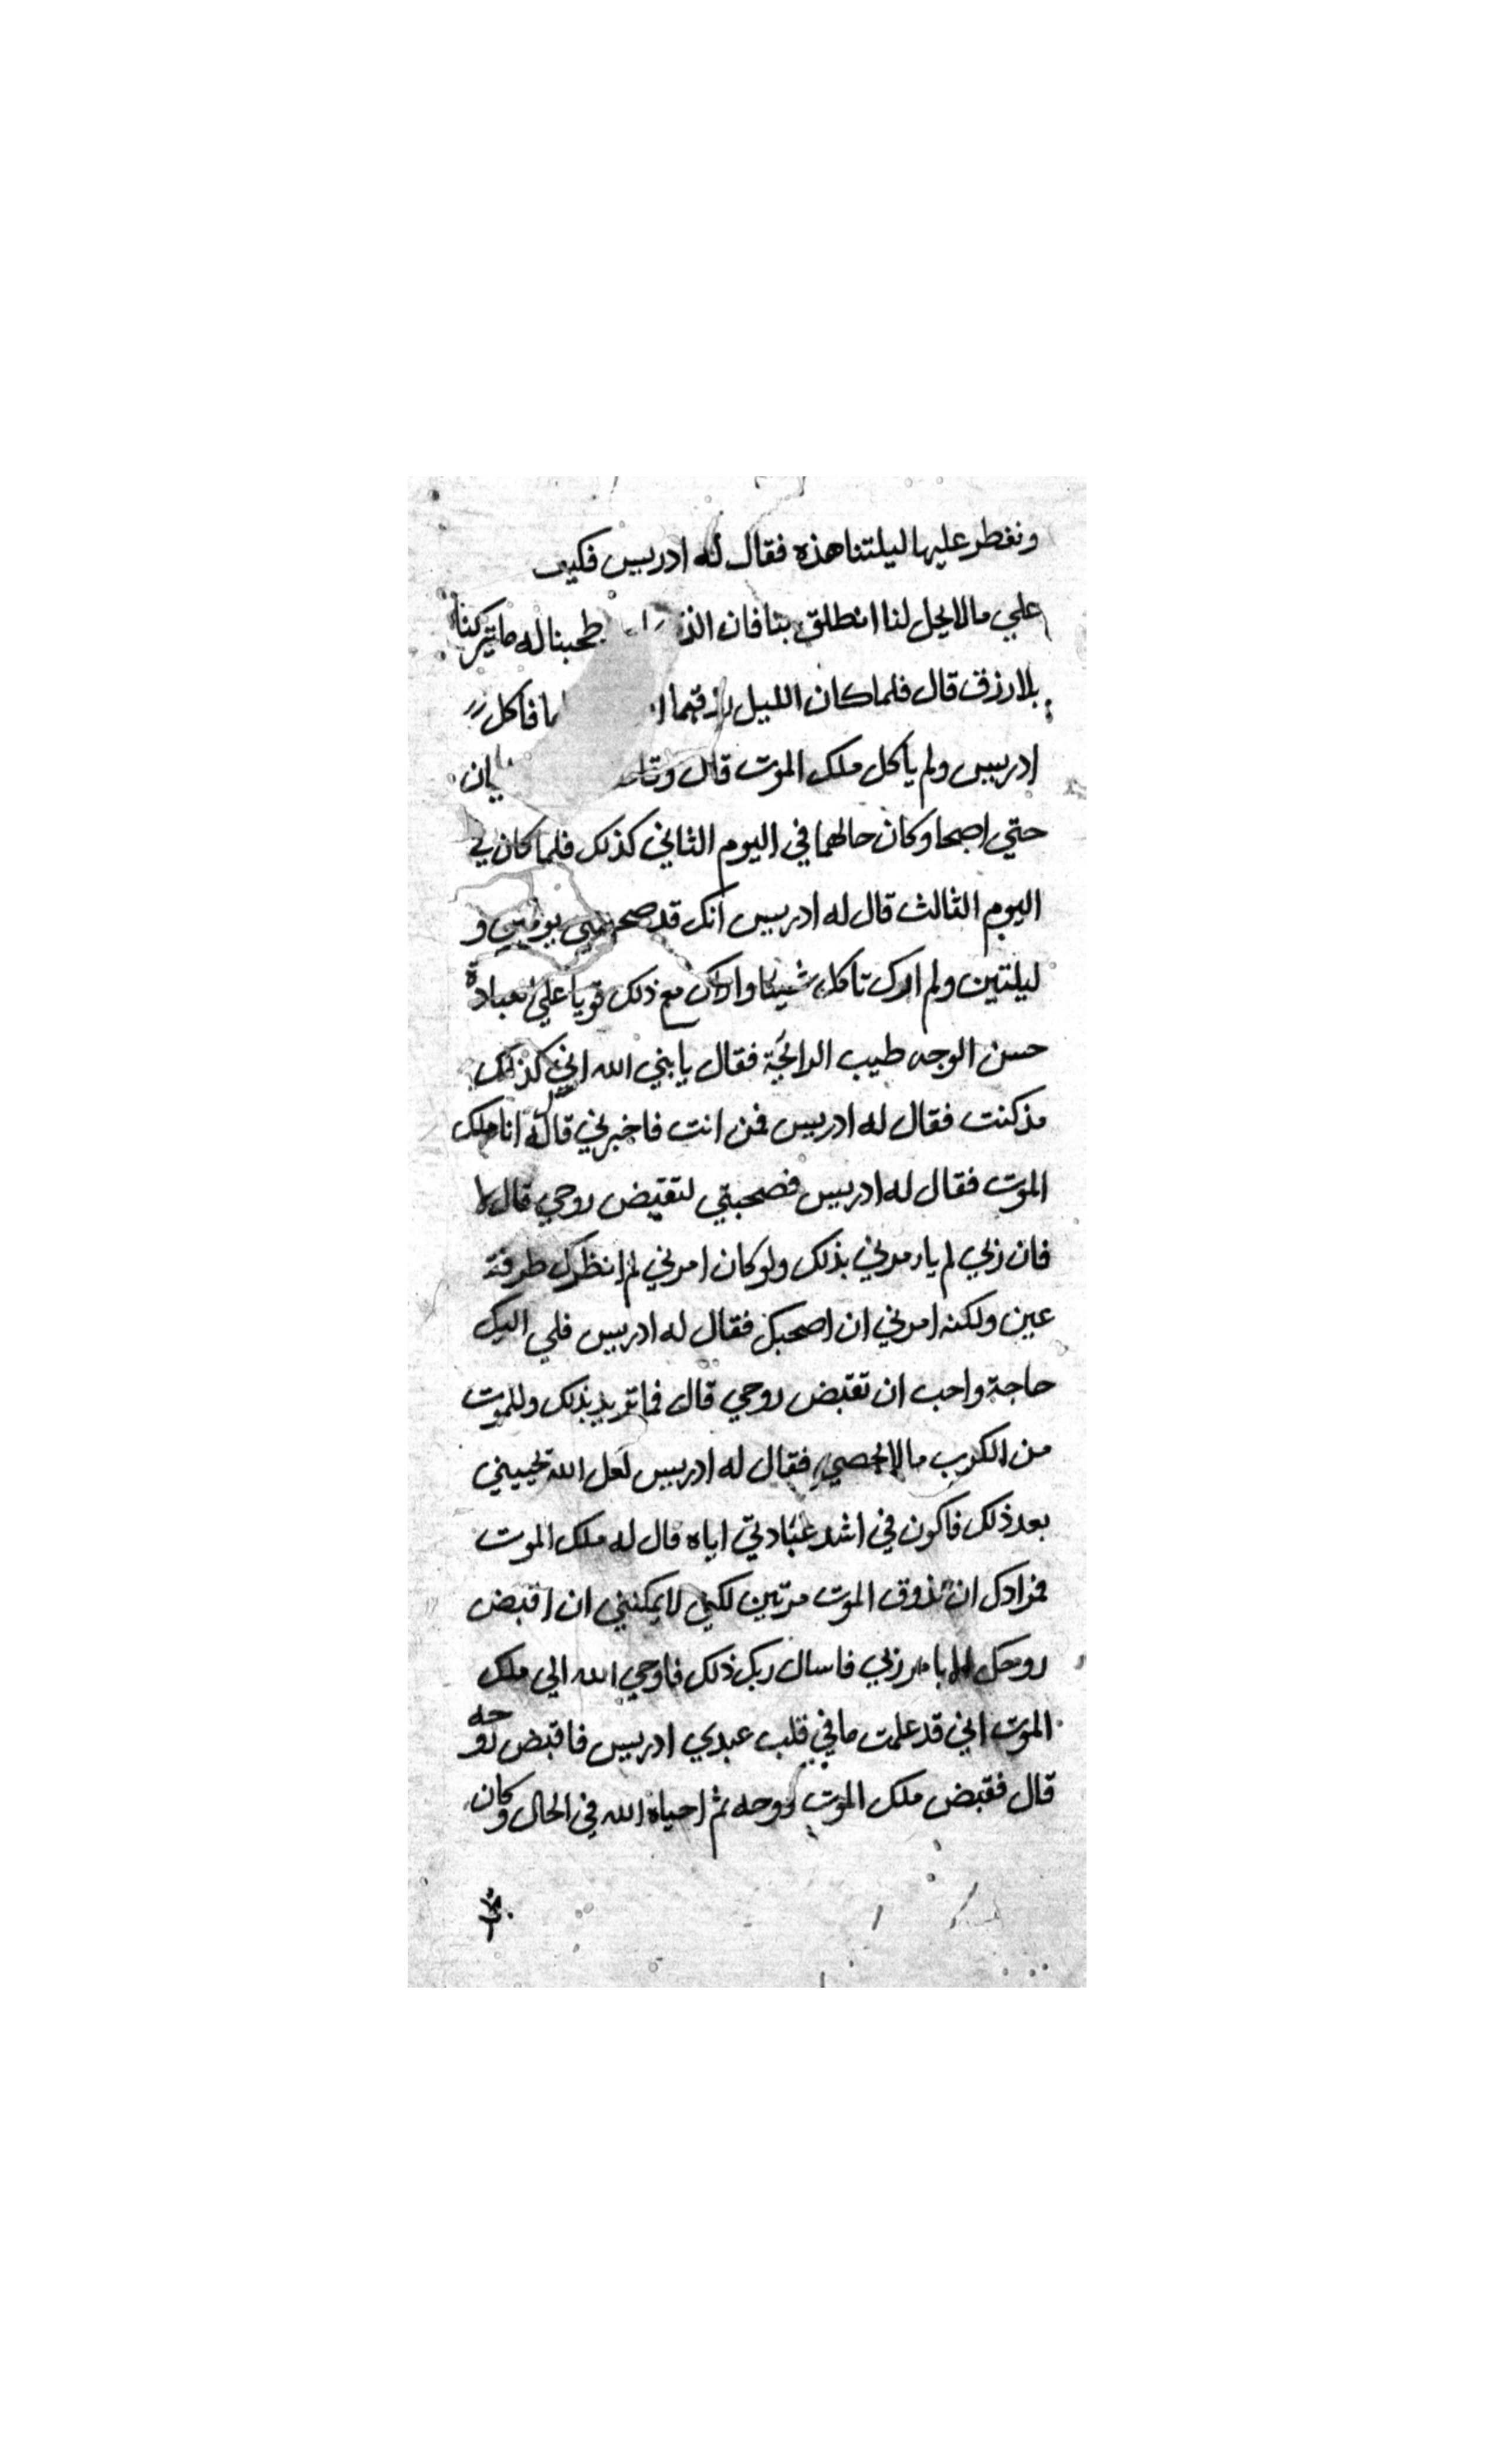 ونفطر عليها ليلتنا هذه فقال له ادريس فكيف
علي مالا يحل لنا انطلق بنا فان الذ طحبنا له ما يتركنا
بلا رزق قال فلما كان الليل رزقهما ما فاكل
ادريس ولم ياكل ملك الموت قال وقا ان
حتي اصبحا وكان حالهما في اليوم الثاني كذلك فلما كان في
اليوم الثالث قال له ادريس انك قد صحبتني يومين و
ليلتين ولم ارك تاكل شيئا واراك مع ذلك قويا علي العبادة
حسن الوجه طيب الرائحة فقال يا نبي الله اني كذلك
مذ كنت فقال له ادريس فمن انت فاخبرني قال له انا ملك
الموت فقال له ادريس فصحبتي لتقبض روحي قال لا
فان ربي لم يامرني بذلك ولو كان امرني لم انظرك طرفة
عين ولكنه امرني ان اصحبك فقال له ادريس فلي اليك
حاجة واحب ان تقبض روحي قال فما تريد بذلك وللموت
من الكرب مالا تحصي فقال له ادريس لعل الله يحييني
بعد ذلك فاكون في اشد عبادتي اياه قال له ملك الموت
فمرادك ان تذوق الموت مرتين لكني لا يمكنني ان اقبض
روحك الا بامر ربي فاسال ربك ذلك فاوحي الله الي ملك
الموت اني قد علمت ما في قلب عبدي ادريس فاقبض روحه
قال فقبض ملك الموت روحه ثم احياه الله في الحال وكان